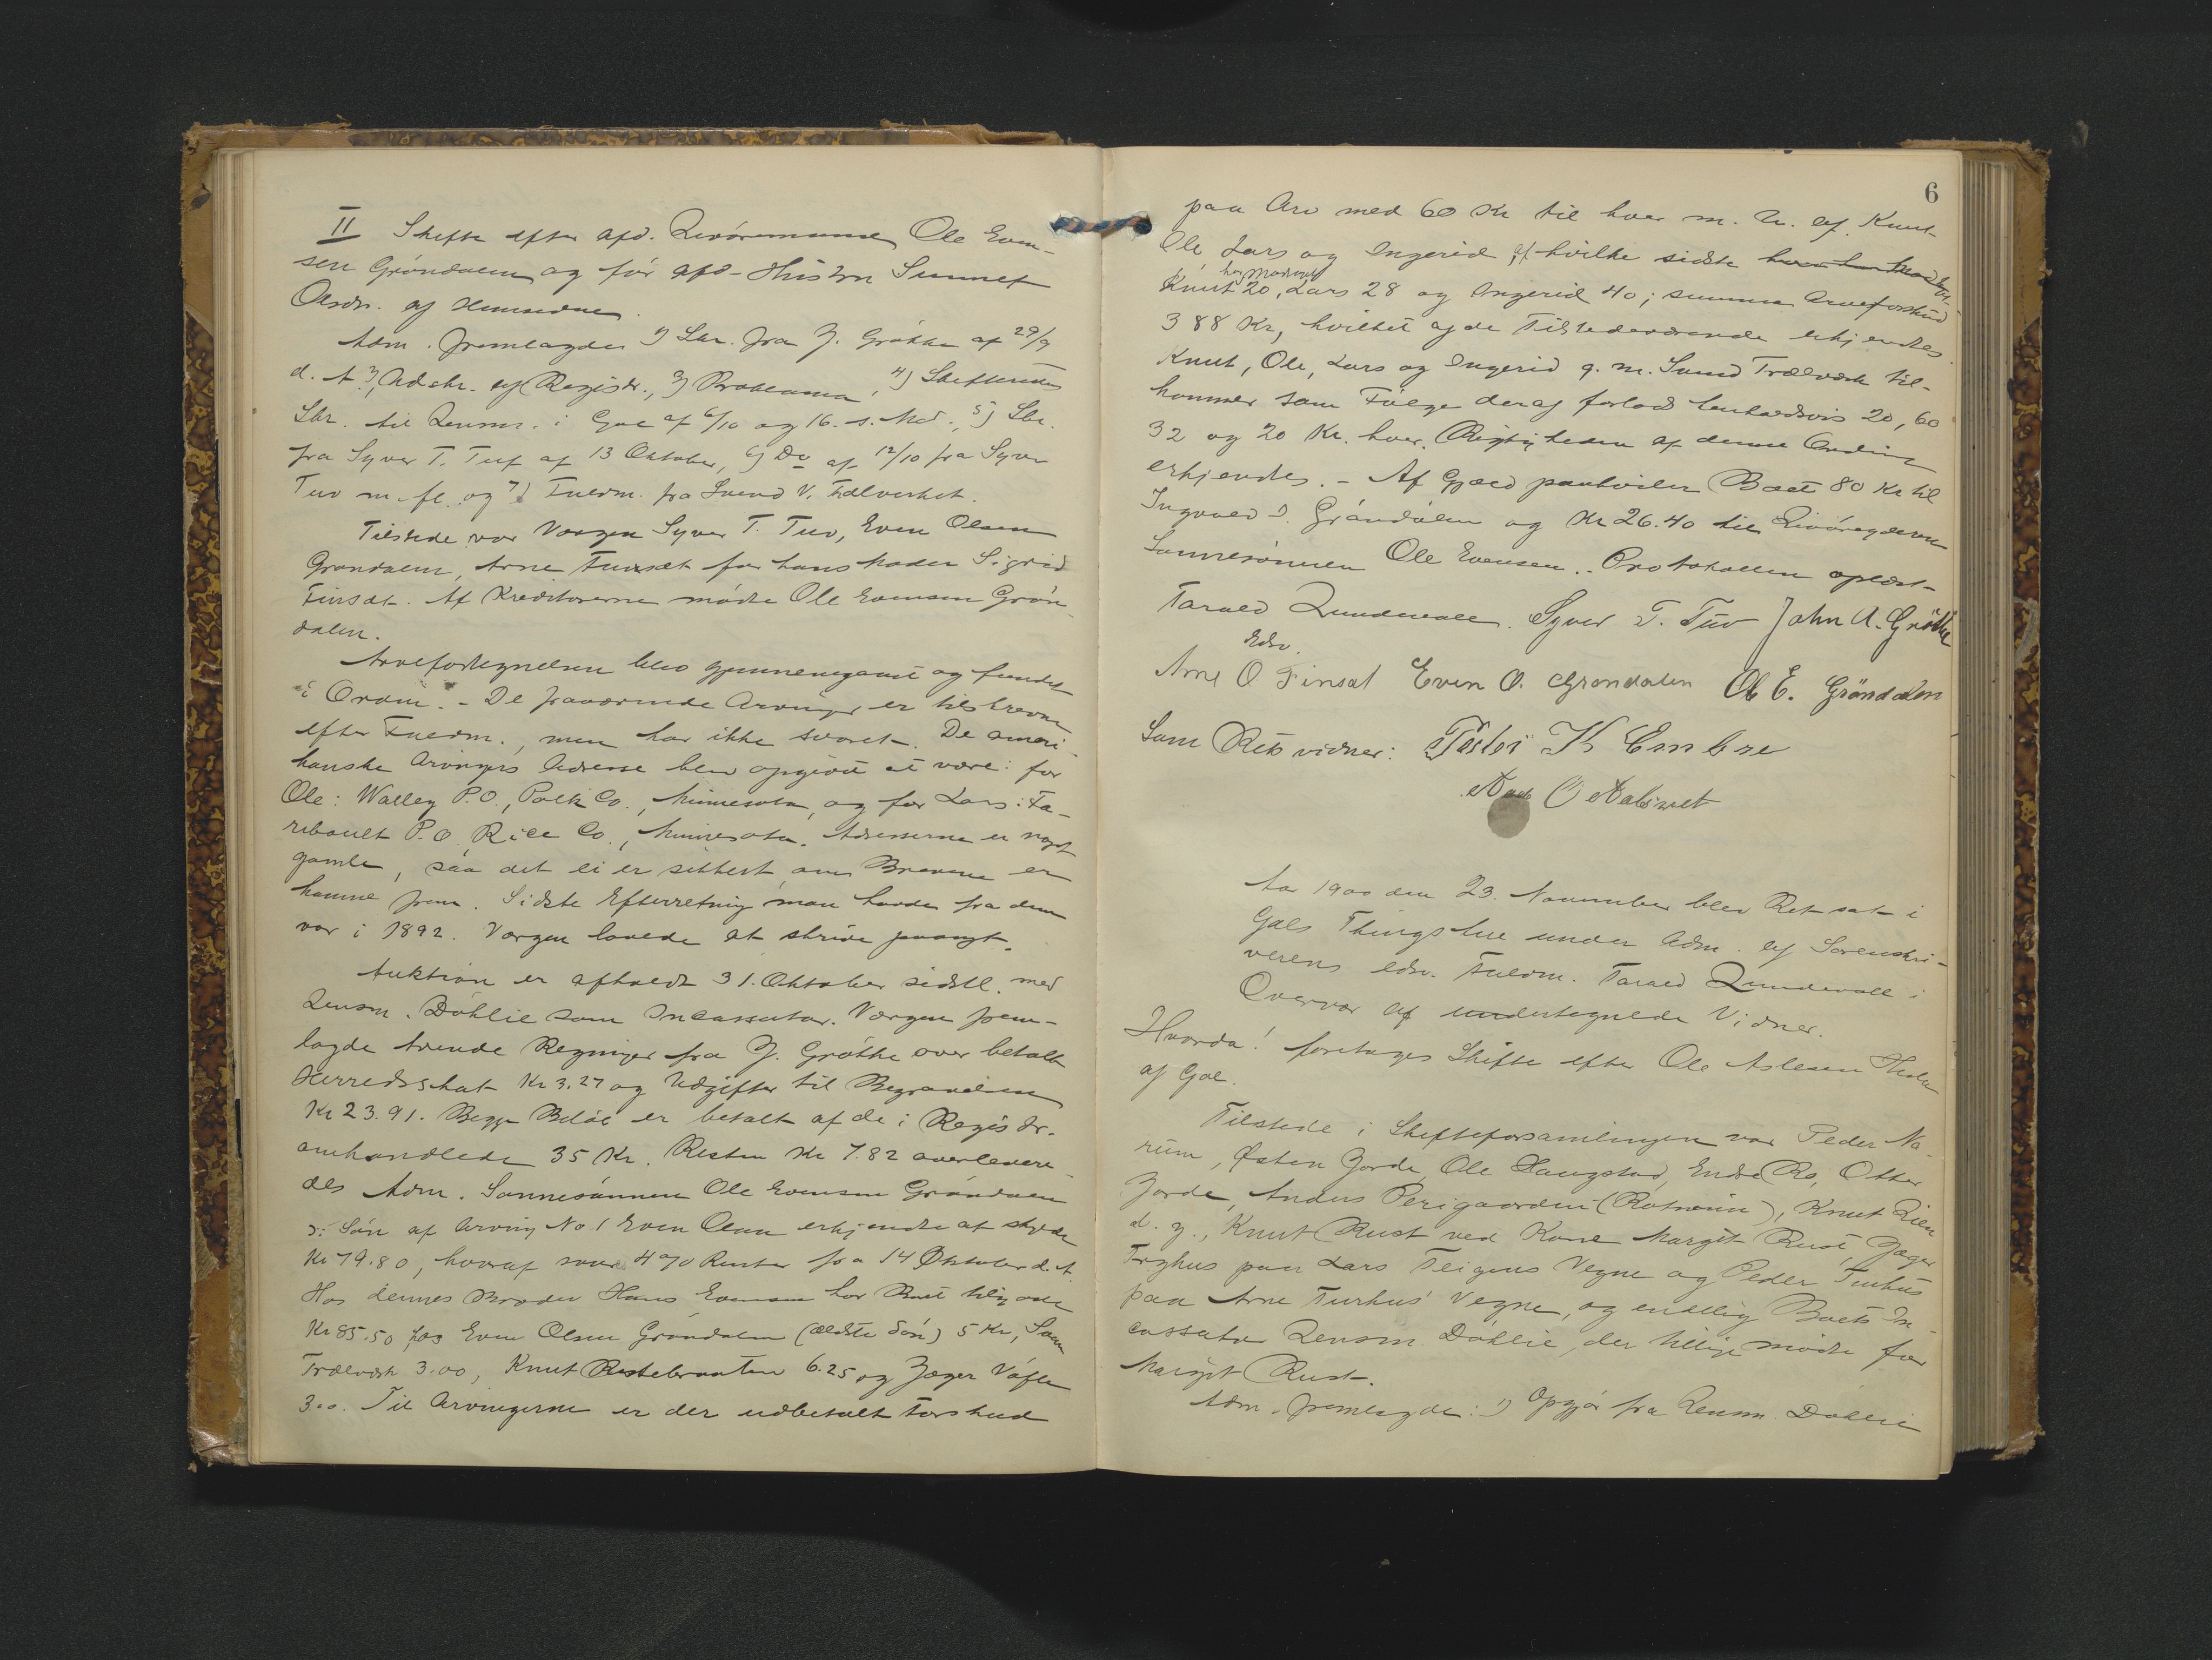 II Skifte efter afd. Livöremand Ole Even-
sen Gröndalen og før afd. Hustru Sunnef
Olsdr. af Hemsedal.
Adm. fremlagde 1) Skr. fra J. Grøthe af 29/9
d. A. 2) Udskr. af Registr., 3) Proklama, 4) Skifterettens
Skr. til Lensm. i Gol af 6/10 og 16. s. Md., 5) Skr.
fra Syver T. Tuf af 13 Oktober, 6) Do af 12/10 fra Syver
Tuv m. fl. og 7) Fuldm. fra Svend V. Trælverket.
Tilstede var Værgen Syver T. Tuv, Even Olsen
Grøndalen, Arne Finsæt for hans Moder Sigrid
Finsæt. Af Kreditorerne mødte Ole Evensen Grøn
dalen.
Arvefortegnelsen blev gjennemgaaet og fundet
i Orden. - De fraværende Arvinger er tilskrevne
efter Fuldm., men har ikke svaret. De ameri-
kanske Arvingers Adresse blev opgivet at være: for
Ole: Walley P.O., Polk Co., Minnesota, og for Lars: Fa-
ribault P.O. Rice Co., Minnesota. Adresserne er noget
gamle, saa det ei er sikkert om Brevene er
komne frem. Sidste Efterretning man havde fra dem
var i 1892. Værgen lovede at skrive
Auktion er afholdt 31. Oktober sidstl. med
Lensm. Döhlie som Incassator. Værgen frem-
lagde tvende Regninger fra J. Grøthe over betalt
Herredsskat Kr 3.27 og Udgifter til Begravelsen
Kr 23.91. Begge Beløb er betalt af de i Registr.
omhandlede 35 Kr. Resten Kr 7.82 overlevere-
des Adm. Sønnesønnen Ole Evensen Gröndalen
ɔ: Søn af Arving No 1 Even Olsen erkjendte at skylde
Kr 79.80, hvoraf svares 4 % Renter fra 14 Oktober d. A.
Hos dennes Broder Hans Evensen har Boet tilgode
Kr 85.50, hos Even Olsen Gröndalen (ældste Søn) 5 Kr, Svend
Trælverk 3.00, Knut Restebraaten 6.25 og Jæger
3.00. Til Arvingerne er der udbetalt Forskud
6
paa Arv med 60 Kr til hver m. N. af Knut
Ole, Lars og Ingerid, af hvilke sidste
har modtaget
Knut 20, Lars 28 og Ingerid 40; summa Arveforskud
388 Kr, hvilket af de Tilstedeværende erkjendtes.
Knut, Ole, Lars og Ingerid g. m. Svend Trælverk til-
kommer som Følge deraf forlods henholdsvis 20, 60
32 og 20 Kr. hver. Rigtigheden af denne
erkjendtes. - Af Gjæld paahviler Boet 80 Kr til
Ingvald Gröndalen og Kr 26.40 til Livöregiveren
Sønnesønnen Ole Evensen. Protokollen oplæst.
Tarald Lundevall. Syver T. Tuv John A. Gröthe
edsv.
Arne O Finsat Even O. Grøndalen Ole E. Gröndalen
Som Retsvidner: K Embre
O
Aar 1900 den 23. November blev Ret sat i
Gols Thingstue under Adm. af Sorenskri-
verens edsv. Fuldm. Tarald Lundevall i
Overvær af undertegnede Vidner.
Hvorda: foretages Skifte efter Ole Aslesen
af Gol.
Tilstede i Skifteforsamlingen var Peder No-
rum, Østen Jorde, Ole Haugstad, Endre Ro, Otter
Jorde, Anders Perigaarden (Rotneim), Knut Lien
d. y., Knut Rust ved Kone Margit Rust, Jæger
paa Lars Teigens Vegne og Peder Turhus
paa Arne Turhus' Vegne, og endelig Boets In-
cassator Lensm. Döhlie, der tillige mødte for
Margit Rust.
Adm. fremlagde: 1) Opgjør fra Lensm. Döhlie